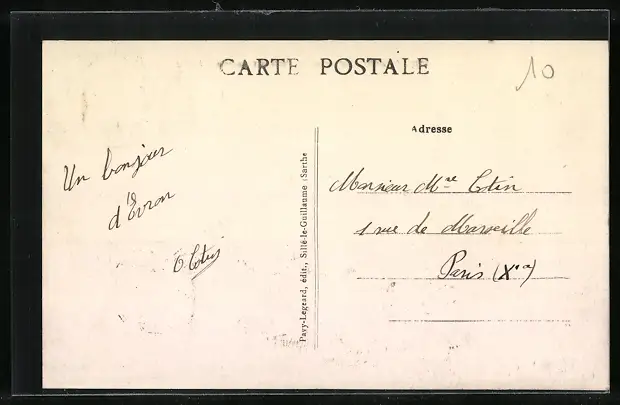 CARTE POSTALE
10
Un bonjour
d'Evron
Adresse
Monsieur Mme Cotin
1 rue de Marseille
Paris (Xe)
Pavy-Legeard, édit., Sillé-le-Guillaume (Sarthe